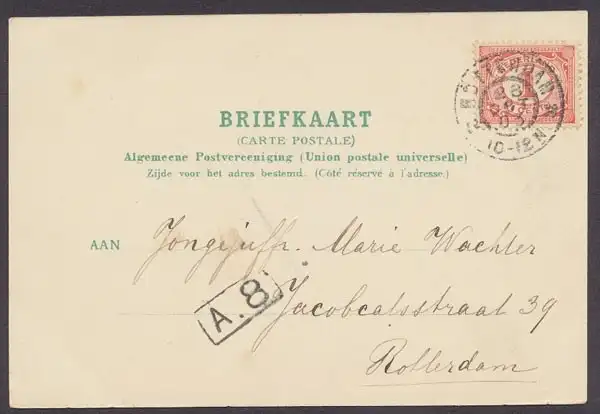 BRIEFKAART
(CARTE POSTALE)
Algemeene Postvereeniging (Union postale universelle)
Zijde voor het adres bestemd. (Côté réservé à l'adresse.)
AAN Jongejuffr. Marie Wachter
Jacobcatsstraat 39
Rotterdam
A.8
NEDERLAND
1
10-12N